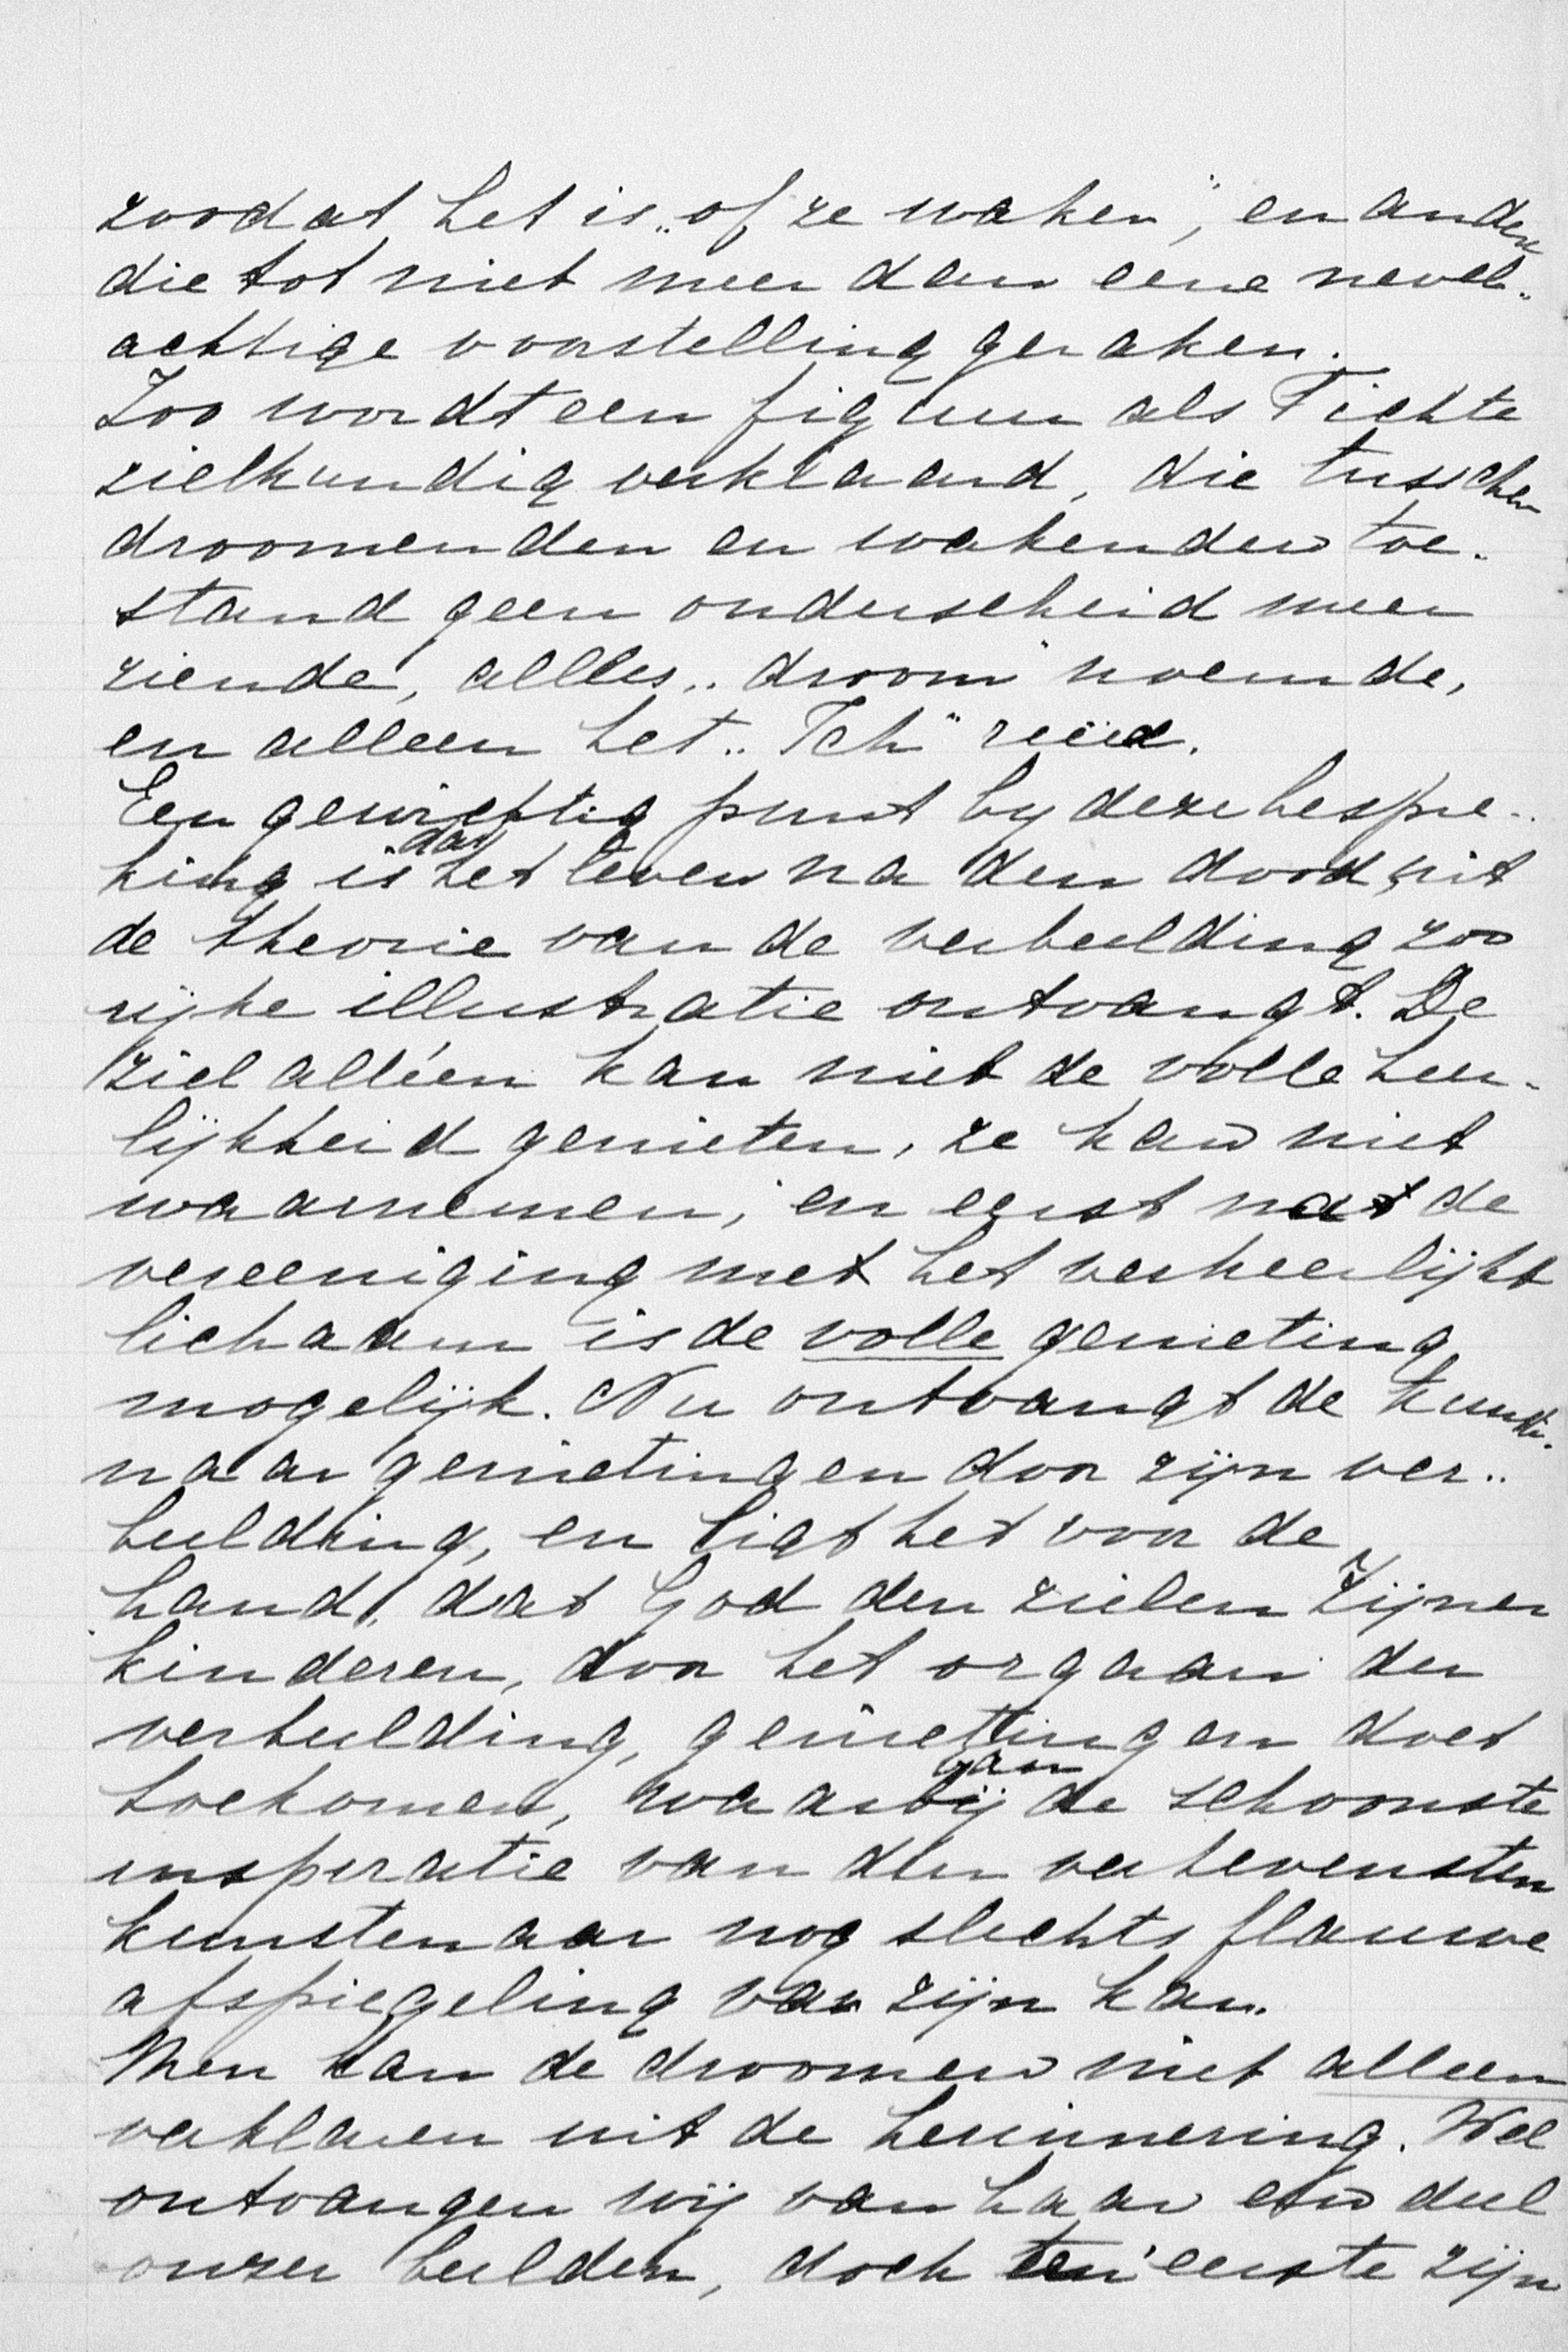 zoodat het is „of ze waken", en andere
die tot niet meer dan eene nevel-
achtige voorstelling geraken.
Zoo wordt een figuur als Fichte
zielkundig verklaard, die tusschen
droomenden en wakenden toe-
stand geen onderscheid meer
ziende, alles „droom" noemde,
en alleen het „Ich" reëel.
Een gewichtig punt by deze bespre-
king is dat het leven na den dood, uit
de theorie van de verbeelding zoo
rijke illustratie ontvangt. De
ziel alléén kan niet de volle heer-
lijkheid genieten, ze kan niet
waarnemen, en eerst na de
vereeniging met het verheerlijkt
lichaam is de volle genieting
mogelijk. Nu ontvangt de kunste-
naar genietingen door zijn ver-
beelding, en ligt het voor de
hand, dat God den zielen Zijner
kinderen, door het orgaan der
verbeelding, genietingen doet
toekomen, waarvan de schoonste
inspiratie van den verhevensten
kunstenaar nog slechts flauwe
afspiegeling van zijn kan.
Men kan de droomen niet alleen
verklaren uit de herinnering. Wel
ontvangen wij van haar een deel
onzer beelden, doch ten eerste zijn